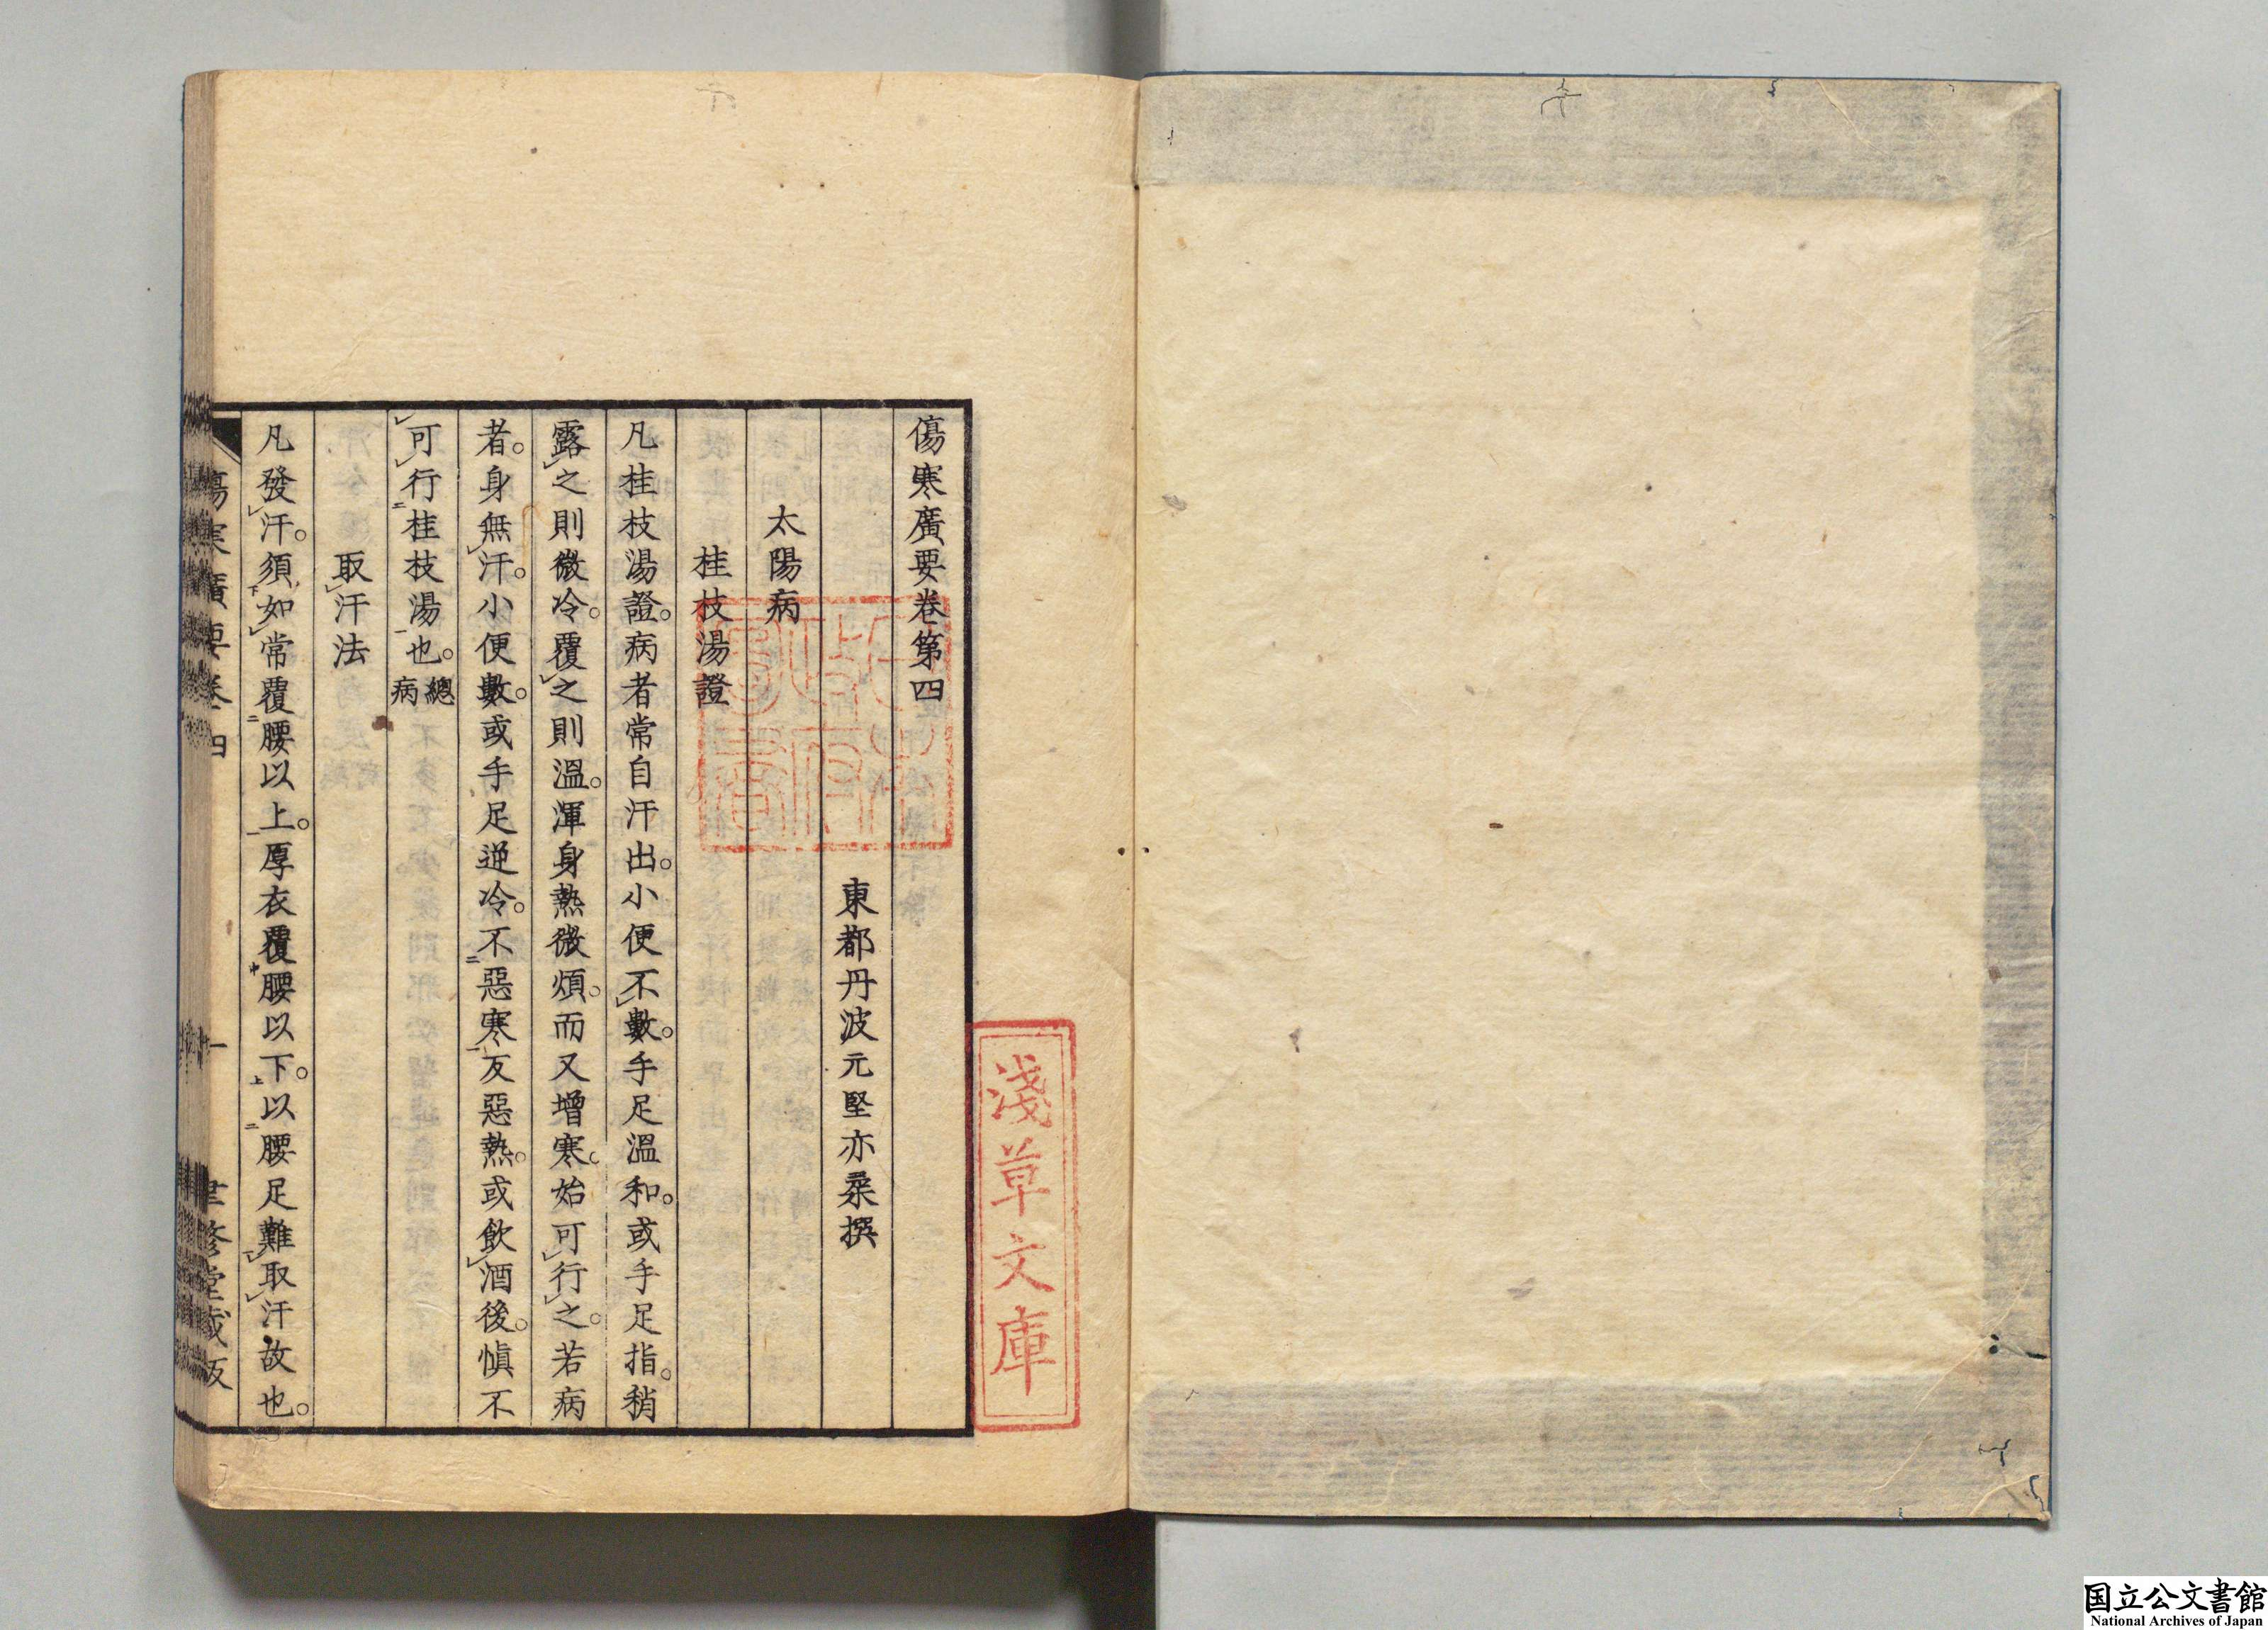 傷寒廣要卷第四
東都丹波元堅亦柔撰
太陽病
桂枝湯證
凡桂枝湯證。病者常自汗出。小便不數。手足溫和。或手足指。稍
露之則微冷。覆之則溫。渾身熱微煩。而又增寒。始可行之。若病
者。身無汗。小便數。或手足逆冷。不惡寒。反惡熱。或飲酒後。愼不
可行桂枝湯也。總病
取汗法
凡發汗。須如常覆腰以上。厚衣覆腰以下。以腰足難取汗故也。
傷寒廣要卷四
一
聿修堂藏版
淺草文庫
国立公文書館
National Archives of Japan